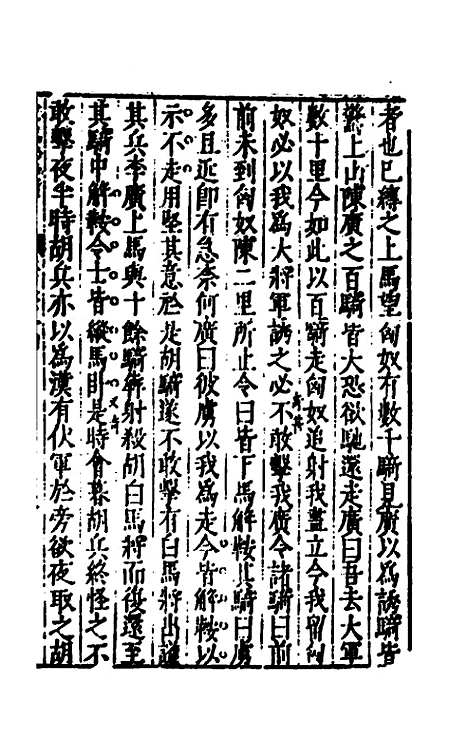 者也已縛之上馬望匈奴有數千騎見廣以爲誘騎皆
驚上山陳廣之百騎皆大恐欲馳還走廣曰吾去大軍
數十里今如此以百騎走匈奴追射我盡立今我留匈
奴必以我爲大將軍誘之必不敢擊我廣令諸騎曰前
前未到匈奴陳二里所止令曰皆下馬解鞍其騎曰虜
多且近即有急柰何廣曰彼虜以我爲走今皆解鞍以
示不走用堅其意於是胡騎遂不敢擊有白馬將出護
其兵李廣上馬與十餘騎犇射殺胡白馬將而復還至
其騎中解鞍令士皆縱馬卧是時會暮胡兵終怪之不
敢擊夜半時胡兵亦以爲漢有伏軍於旁欲夜取之胡